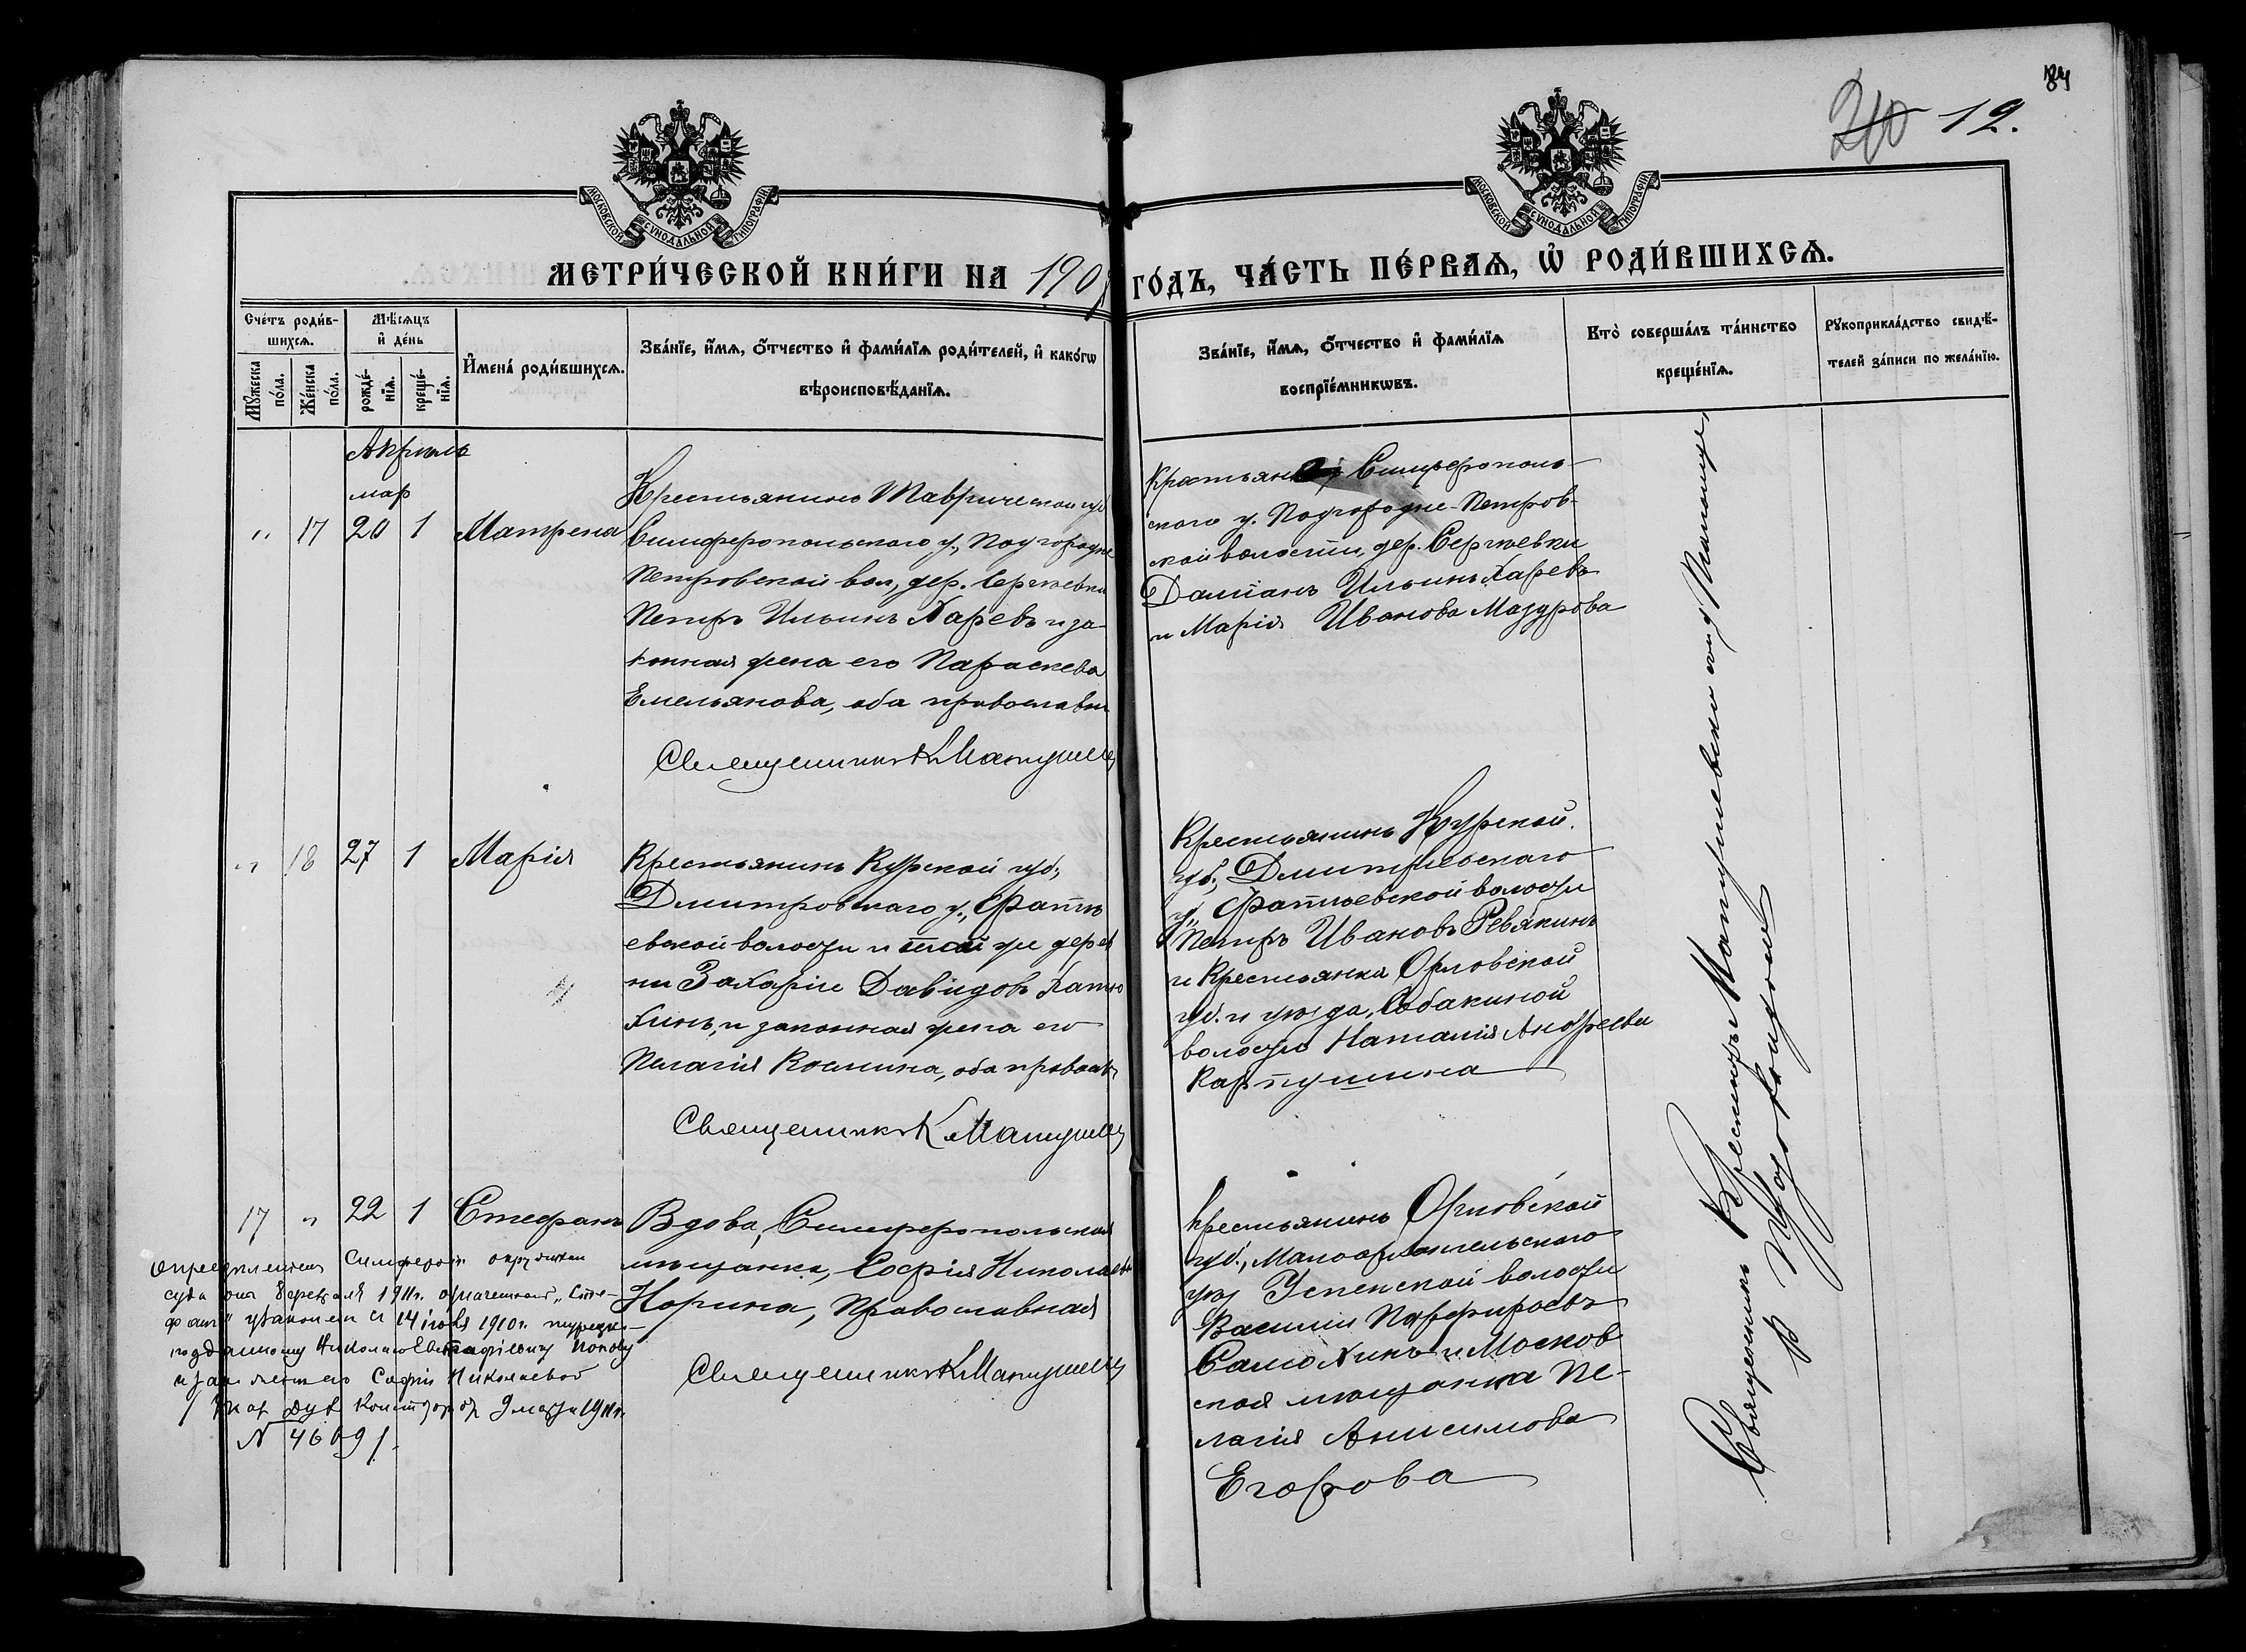 84
240 12.
МОСКОВСКОЙ СѴНОДАЛЬНОЙ ТИПОГРАФІИ
МОСКОВСКОЙ СѴНОДАЛЬНОЙ ТИПОГРАФІИ
МЕТРИ́ЧЕСКОЙ КНИ́ГИ НА 190
ГО́ДЪ, ЧА́СТЬ ПЕ́РВАѦ, Ѡ҆ РОДИ́ВШИХСѦ.
Сче́тъ роди́в-
шихсѧ.
Мꙋ́жеска по́ла.
Же́нска по́ла.
Мѣ́сѧцъ
и҆ де́нь
рожде́-
нїѧ.
креще́-
нїѧ.
И҆мена̀ роди́вшихсѧ.
Зва́нїе, и҆́мѧ, ѻ҆́тчество и҆ фами́лїѧ роди́телей, и҆ како́гѡ
вѣроисповѣ́данїѧ.
Зва́нїе, и҆́мѧ, ѻ҆́тчество и҆ фами́лїѧ
воспрїе́мникѡвъ.
Кто̀ соверша́лъ та́инство
креще́нїѧ.
Рꙋкоприкла́дство свидѣ́-
телей за́писи по жела́нїю.
Апрѣль
мар
" 17 20 1 Матрена
Крестьянинъ Таврической губ
Симферопольскаго у., Подгородне
Петровской вол, дер. Сергѣевки
Петръ Ильинъ Харевъ и за-
конная жена его Параскева
Емельянова, оба православн
Священникъ К Матушев
Симферополь-
скаго у. Подгородне-Петров-
ской волости, дер. Сергѣевки
Даміанъ Ильинъ Харевъ
и Марія Иванова Мазурова
" 18 27 1 Марія
Крестьянинъ Курской губ.,
Дмитровскаго у., Фатѣ
евской волости и той же дерев
ни Захарій Давидовъ Катю
хинъ, и законная жена его
Пелагія Космина, оба правосл
Священникъ К Матушев
Крестьянинъ Курской
губ., Дмитріевскаго
у., Фатѣевской волости
Петръ Ивановъ Ревякинъ
и Крестьянка Орловской
губ. и уѣзда, Собакиной
волости Наталія Андреева
Карпушина
17 " 22 1 Стефанъ
Вдова, Симферопольская
мѣщанка, Софія Николаев
Норина, Православная
Священникъ К Матушев
Крестьянинъ Орловской
губ., Малоархангельскаго
уѣз Успенской волости
Василій Порфирьевъ
Самохинъ и Москов
ская мѣщанка Пе-
лагія Анисимова
Егорова
Опредѣленіемъ Симфероп. окружнаго
суда отъ 8 февраля 1911г. означенный „Сте-
фанъ" узаконенъ съ 14 іюля 1910г. турецко-
подданному Николаю Евстафіевичу Попову
и женѣ его Софіи Николаевой
/ Указ Дух Консист отъ 9 марта 1911г.
N 4609/.
Священникъ Крескентъ Матушевскій